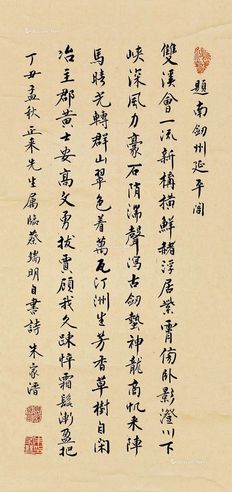 題南劒州延平閣
雙溪會一流新構橫鮮赭浮居紫霄傍卧影澄川下
峽深風力豪石隋湍聲瀉古劒蟄神龍商帆來陣
馬晴光轉群山翠色着萬瓦汀洲生芳香草樹自閑
冶主郡黃士安高文勇拔賈顧我久踈悴霜髭漸盈把
丁丑孟秋正来先生屬臨蔡端明自書詩 朱家溍